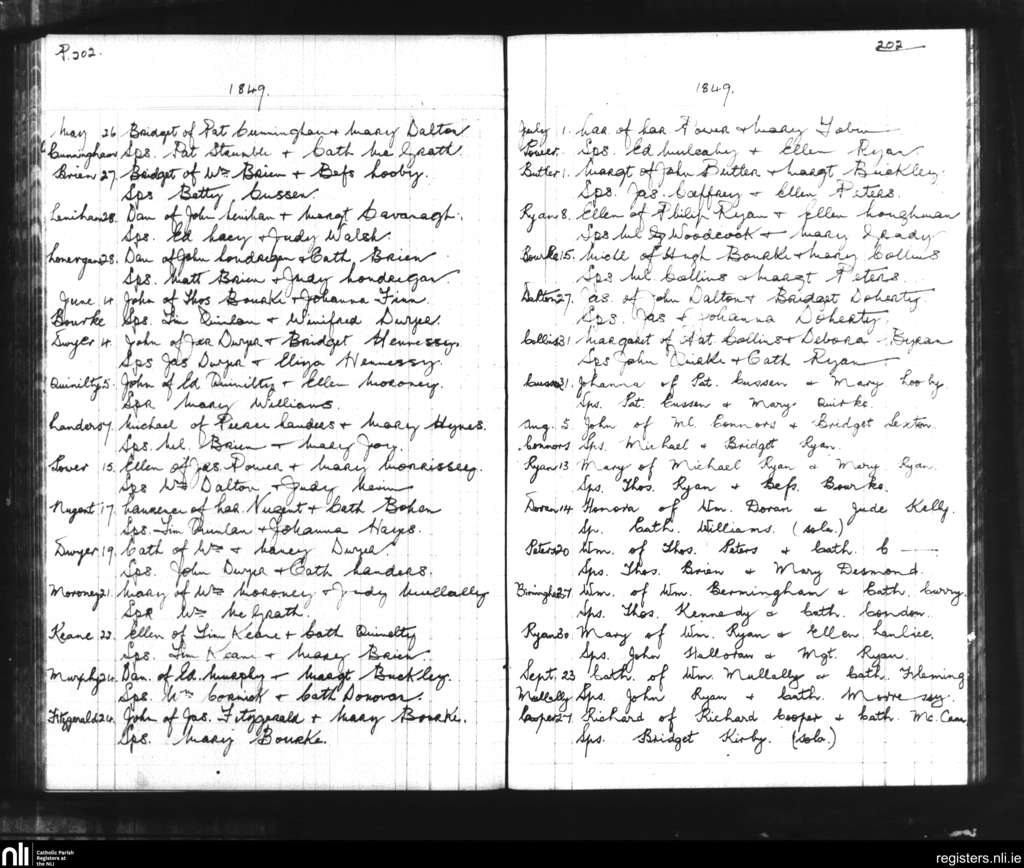 P.202.
1849.
May 26 Bridget of Pat Cunningham + Mary Dalton
Cunningham Sps. Pat Stumble + Cath Mc Gratt
Brien 27. Bridget of Wm Brien + Bess Looby.
Sps Betty Cussen
Lenihan 28. Dan of John Lenihan + Margt Cavanagh.
Sps. Ed Lacy + Judy Walsh.
Lonergan 28. Dan of John Londregan + Cath Brien
Sps. Matt Brien + Judy Londregan.
June 4 John of Thos Bourke + Johanna Finn.
Bourke Sps. Tim Quinlan + Winifred Dwyer.
Dwyer 4. John of Jas Dwyer + Bridget Hennessy.
Sps Jas Dwyer + Eliza Hennessy.
Quinilty 5. John of Ed Quinilty + Ellen Moroney.
Spr Mary Williams.
Landers 7. Michael of Pierse Landers + Mary Hynes.
Sps. Ml. Brien + Mary Joy.
Power 15. Ellen of Jas. Power + Mary Morrissey.
Sps Wm Dalton + Judy
Nugent 17. Laurence of Lar. Nugent + Cath Bohan
Sps. Tim Quinlan + Johanna Hayes.
Dwyer 19. Cath of Wm + Nancy Dwyer
Sps. John Dwyer + Cath Landers.
Moroney 21. Mary of Wm Moroney + Judy Mullally
Spr Wm Mc Grath.
Keane 22. Ellen of Tim Keane + Cath Quinilty
Sps. Tim Keane + Mary Brien.
Murphy 24. Dan. of Ed. Murphy + Margt Buckley.
Sps. Wm Cormick + Cath Donovan.
Fitzgerald 24. John of Jas. Fitzgerald + Mary Bourke.
Sps. Mary Bourke.
202
1849.
July 1. Lar. of Lar. Power + Mary Tobin
Power. Sps. Ed Mulcahy + Ellen Ryan
Butler 1. Margt of John Butler + Margt Buckley.
Sps. Jas. Caffrey + Ellen Peters.
Ryan 8. Ellen of Philip Ryan + Ellen Loughman
Sps Ml Woodcock + Mary Grady
Bourke 15. Michl of Hugh Bourke + Mary Collins
Sps Ml. Collins + Margt Peters.
Dalton 27. Jas. of John Dalton + Bridget Doherty
Sps. Jas + Johanna Doherty.
Collins 31 Margaret of Pat Collins + Debora Byran
Sps John Quirke + Cath Ryan
Cussen 31. Johanna of Pat. Cussen & Mary Looby
Sps. Pat. Cussen & Mary Quirke.
Aug. 5 John of Ml. Connors & Bridget Sexton.
Connors Sps. Michael & Bridget Ryan.
Ryan 13 Mary of Michael Ryan & Mary Ryan.
Sps. Thos. Ryan & Bess. Bourke.
Doran 14 Honora of Wm. Doran & Jude Kelly.
Sp. Cath. Williams. (sola.)
Peters 20 Wm. of Thos. Peters & Cath. C ——
Sps. Thos. Brien & Mary Desmond.
Birmingham 27 Wm. of Wm. Bermingham & Cath. Curry.
Sps. Thos. Kennedy & Cath. Condon.
Ryan 30. Mary of Wm. Ryan & Ellen
Sps. John Halloran & Mgt. Ryan.
Sept. 23 Cath. of Wm. Mullally & Cath. Fleming
Mullally Sps. John Ryan & Cath. Morrissey.
Cooper 27 Richard of Richard Cooper & Cath. Mc.
Sps. Bridget Kirby. (sola.)
nli Catholic Parish
Registers at
the NLI
registers.nli.ie